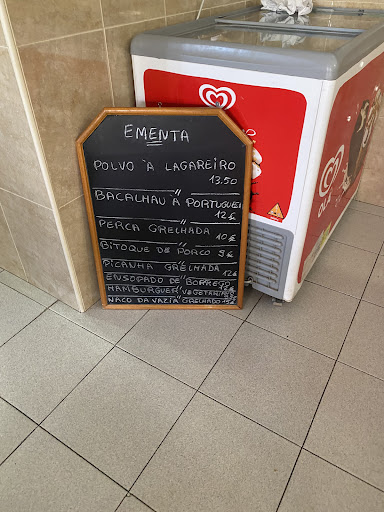 EMENTA
POLVO À LAGAREIRO
13,50
BACALHAU À PORTUGUE
12€
PERCA GRELHADA
10€
BITOQUE DE PORCO 9€
PICANHA GRELHADA 12€
ENSOPADO DE BORREGO
HAMBURGUER VEGETARI
NACO DA VAZIA GRELHADO
OLÁ